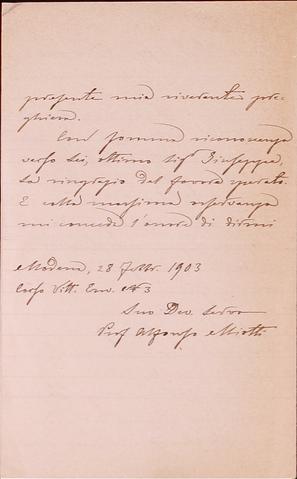 presente mia riverente pre-
ghiera.
Con somma riconoscenza
verso Lei, ottimo Sigr Giuseppe,
La ringrazio del favore sperato.
E colla massima osservanza
mi conceda l'onore di dirmi
Modena, 28 Febbr. 1903
Corso Vitt. Em. N 3
Suo Dev. servo
Prof Alfonso Miotti